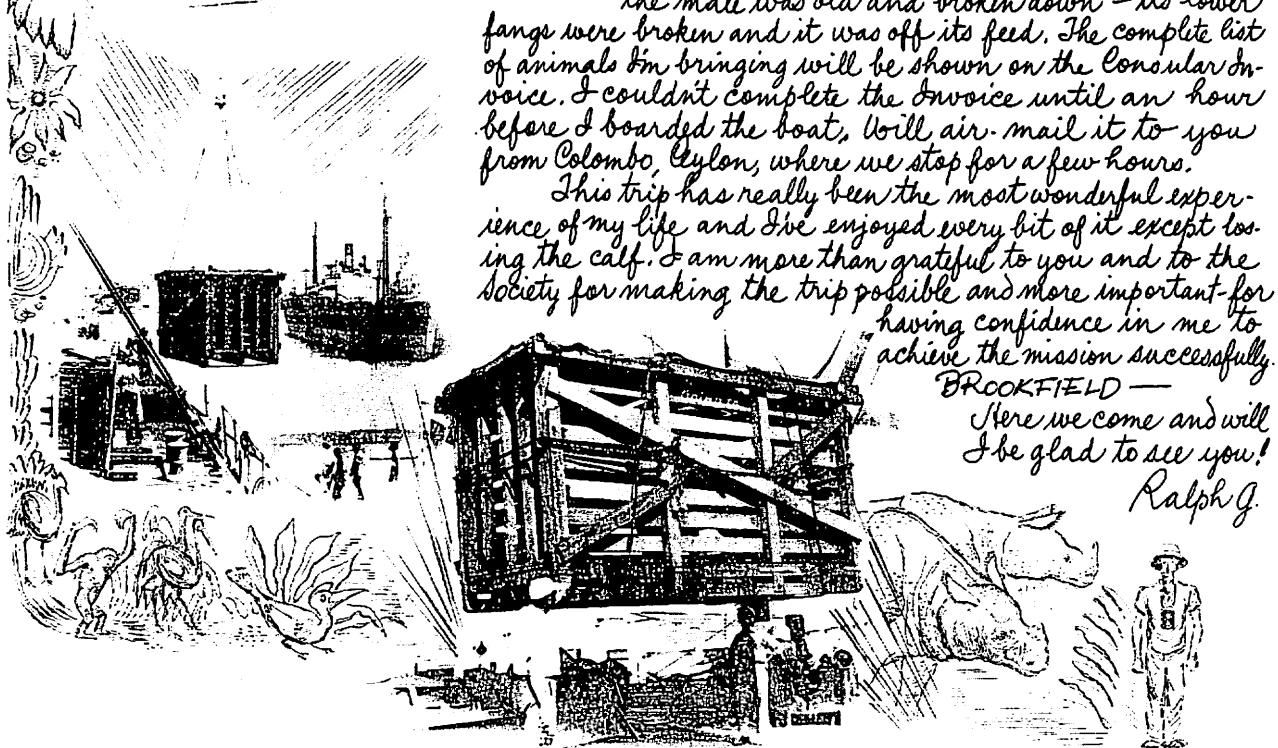 the male was old and broken down — its lower
fangs were broken and it was off its feed. The complete list
of animals I'm bringing will be shown on the Consular In-
voice. I couldn't complete the Invoice until an hour
before I boarded the boat. Will air-mail it to you
from Colombo, Ceylon, where we stop for a few hours.
This trip has really been the most wonderful exper-
ience of my life and I've enjoyed every bit of it except los-
ing the calf. I am more than grateful to you and to the
Society for making the trip possible and more important-for
having confidence in me to
achieve the mission successfully.
BROOKFIELD —
Here we come and will
I be glad to see you!
Ralph G.